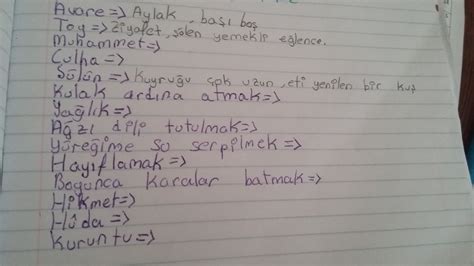 Avare => Aylak, başı boş
Toy => Ziyafet, şölen yemekli eğlence.
Muhammet =>
Culha =>
Sülün => Kuyruğu çok uzun, eti yenilen bir kuş
Kulak ardına atmak =>
Yağlık =>
Ağzı dili tutulmak =>
Yüreğime su serpilmek =>
Hayıflamak =>
Boyunca karalar batmak =>
Hikmet =>
Hüda =>
Kuruntu =>